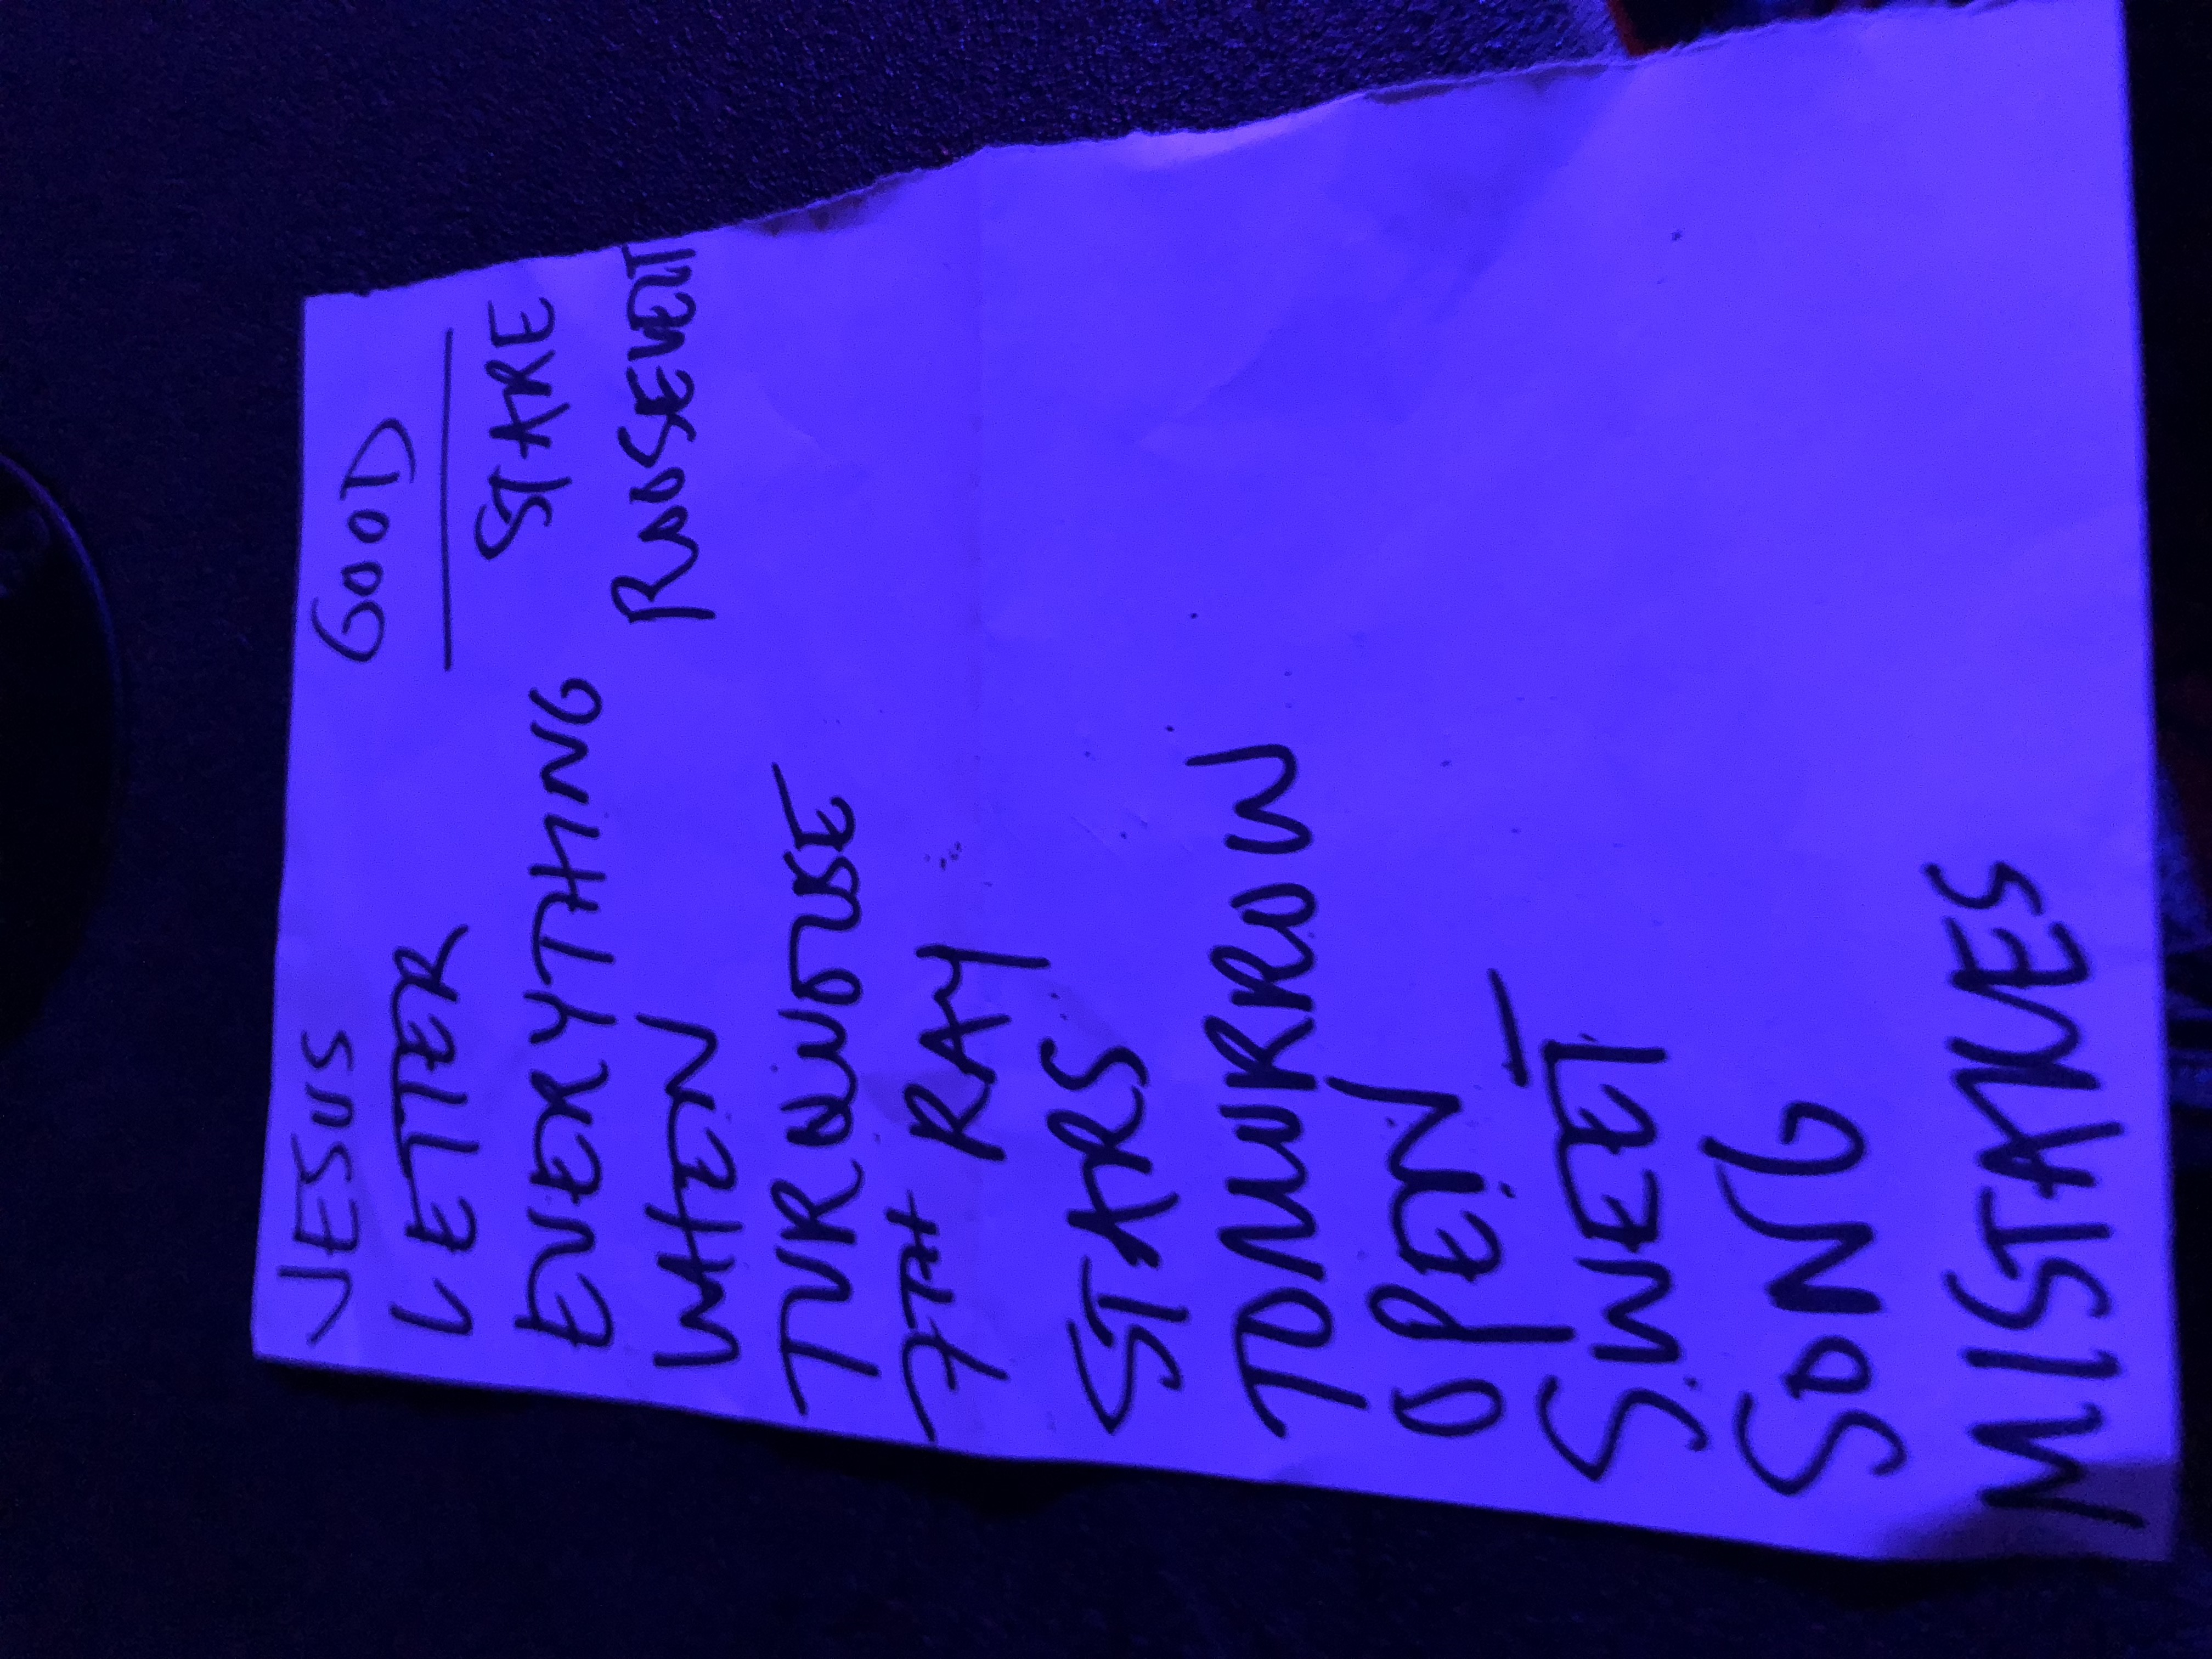 JESUS
LETTER
EVERYTHING
WHEN
TURQUOISE
7TH RAY
STARS
TOMORROW
OPEN
SWEET
SONG
MISTAKES
GOOD
STARE
ROOSEVELT